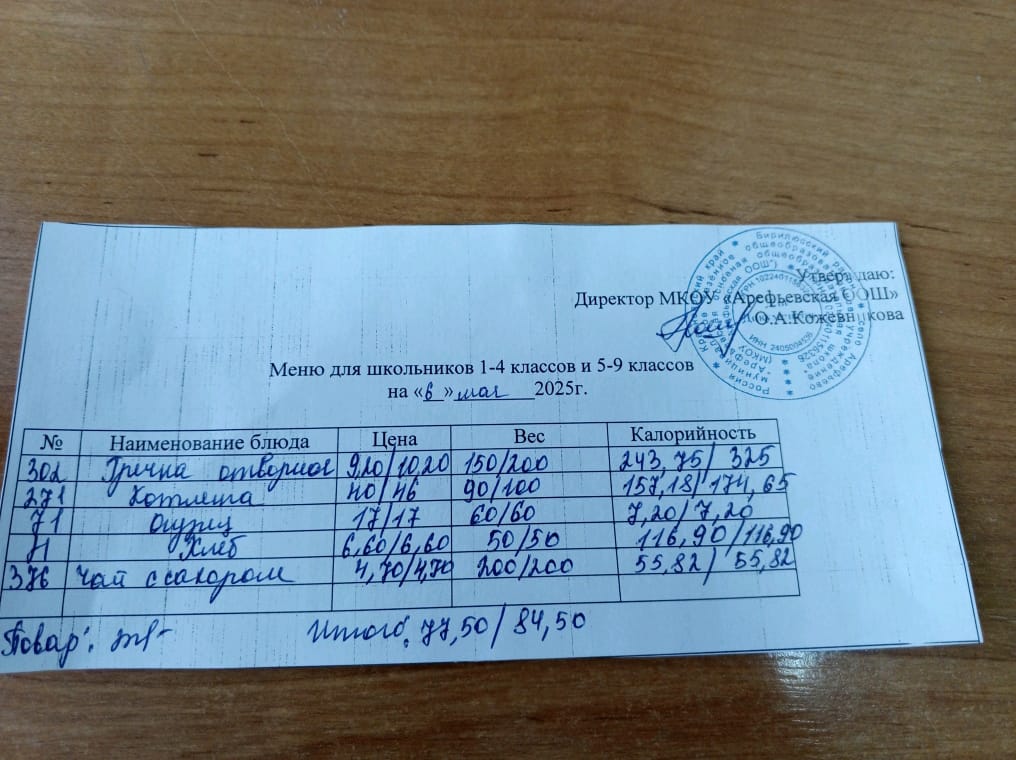 Утверждаю:
Директор МКОУ «Арефьевская ООШ»
О.А.Кожевникова
Меню для школьников 1-4 классов и 5-9 классов
на «6» мая 2025г.
№ Наименование блюда Цена Вес Калорийность
302 Гречка отворная 9,20/10,20 150/200 243,75/325
271 Котлета 40/46 90/100 157,18/174,65
71 Огурец 17/17 60/60 7,20/7,20
Н Хлеб 6,60/6,60 50/50 116,90/116,90
376 Чай с сахаром 4,70/4,70 200/200 55,82/55,82
Повар: Итого: 77,50/84,50